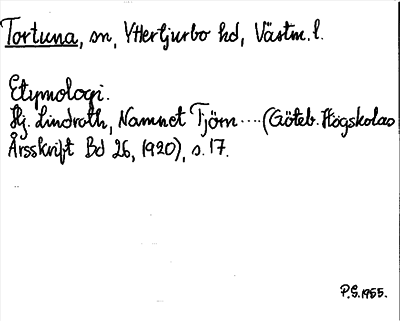 Tortuna, sn, Yttertjurbo hd, Västm. l.
Etymologi.
Hj. Lindroth, Namnet Tjörn .... (Göteb. Högskolas
Årsskrift Bd 26, 1920), s. 17.
P.S. 1955.